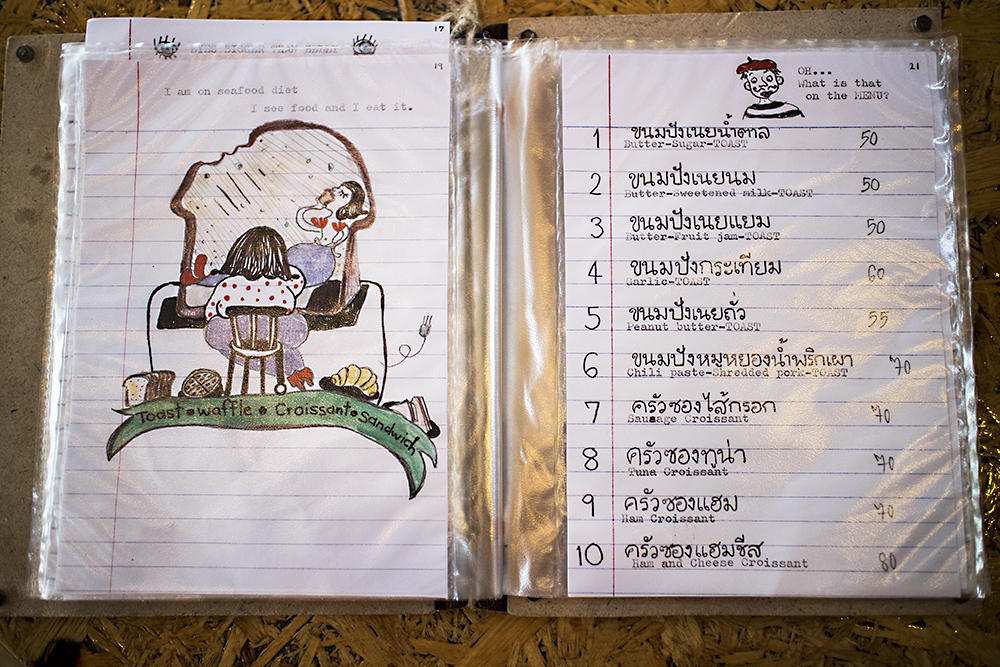 17
EYES BIGGER THAN BELLY
19
I am on seafood diet
I see food and I eat it.
Toast • waffle • Croissant • Sandwich
21
OH...
What is that
on the MENU?
1 ขนมปังเนยน้ำตาล 50
Butter-Sugar-TOAST
2 ขนมปังเนยนม 50
Butter-Sweetened milk-TOAST
3 ขนมปังเนยแยม 50
Butter-Fruit jam-TOAST
4 ขนมปังกระเทียม 60
Garlic-TOAST
5 ขนมปังเนยถั่ว 55
Peanut butter-TOAST
6 ขนมปังหมูหยองน้ำพริกเผา 70
Chili paste-Shredded pork-TOAST
7 ครัวซองไส้กรอก 70
Sausage Croissant
8 ครัวซองทูน่า 70
Tuna Croissant
9 ครัวซองแฮม 70
Ham Croissant
10 ครัวซองแฮมชีส 80
Ham and Cheese Croissant